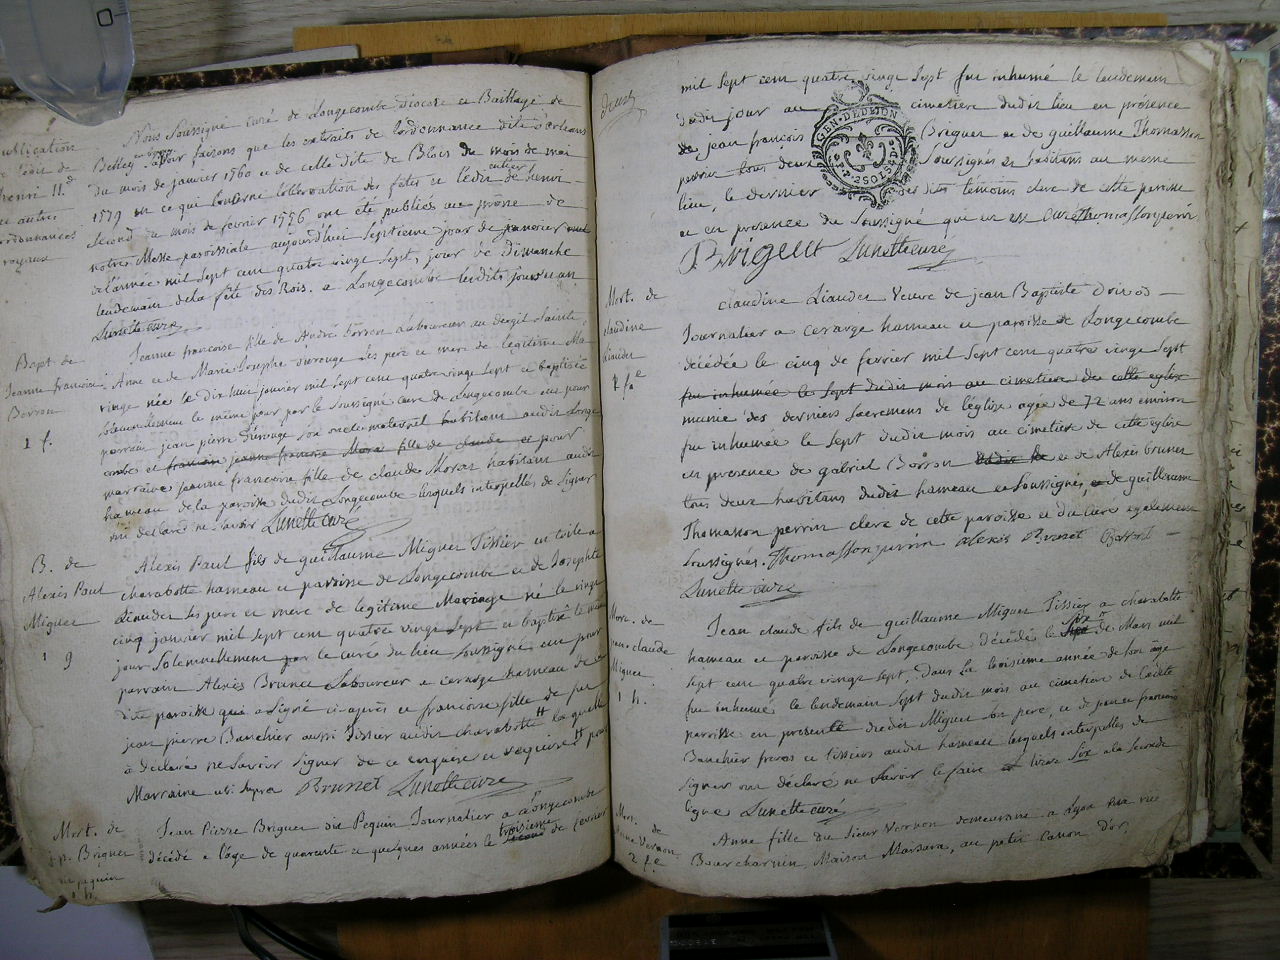 publication
de l'edit de
henri II.d
et autres
ordonnances
royaux
Nous Soussigné curé de Longecombe diocese et Bailliage de
Belley faisons que les extraits de l'ordonnance dite d'orleans
du mois de janvier 1560 et de celle dite de Blois du mois de mai
1579 en ce qui concerne l'observation des fetes et l'édit entier de henri
Second du mois de fevrier 1556 ont été publiés au prône de
notre Messe paroissiale aujourd'hui Septieme jour de janvier
de l'année mil Sept cent quatre vingt Sept, jour de dimanche
lendemain de la fête des Rois. a Longecombe lesdits jours et an
Lunette curé
Bapt. de
Jeanne francoise
Borron
1 f.
Jeanne francoise fille de André Borron Laboureur au dergit Sainte
Anne et de Marie Josephe Ses pere et mere de legitime Ma-
riage née le dix huit janvier mil Sept cent quatre vingt Sept et baptisée
Solemnellement le même jour par le Soussigné curé de Longecombe eut pour
parrain jean pierre Son oncle maternel habitant audit Longe
combe et jeanne francoise Moras fille de claude et pour
marraine jeanne francoise fille de claude Moras habitant audit
hameau de la paroisse dudit Longecombe lesquels interpellés de signer
ont declaré ne savoir Lunette curé
B. de
Alexis Paul
Miguet
1 g
Alexis Paul fils de guillaume Miguet Tissier en toile a
charabotte hameau et paroisse de Longecombe et de Josephte
Liaudet Ses pere et mere de legitime Mariage né le vingt
cinq janvier mil Sept cent quatre vingt Sept et baptisé le même
jour Solemnellement par le curé du lieu Soussigné eut pour
parrain Alexis Brunet Laboureur a cerarge hameau de
dite paroisse qui a Signé ci-après et francoise fille de feu
jean pierre Banchier aussi Tissier audit charabotte la quelle
à declaré ne Savoir Signer de ce enquise et requise pour
Marraine ubi supra Brunet Lunette curé
Mort. de
j.p. Briguet
dit pequin
1 h.
Jean Pierre Briguet dit Pequin Journalier a Longecombe
décédé a l'âge de quarante et quelques années le troisieme de fevrier
mil Sept cent quatre vingt Sept fut inhumé le lendemain
dudit jour au cimetiere dudit lieu en présence
de jean francois Briguet et de guillaume Thomasson
perrin tous deux Soussignés et habitans au meme
lieu, le dernier des dits témoins clerc de cette paroisse
et en presence du Soussigné qui en est curé Thomassonperrin
GEN. DE DIJON
2.SOLS 4.D
Briguet Lunette curé
Mort. de
claudine
Liaudet
1 f.e
claudine Liaudet Veuve de jean Baptiste
Journalier a cerarge hameau et paroisse de Longecombe
décédée le cinq de fevrier mil Sept cent quatre vingt Sept
fut inhumée le Sept dudit mois au cimetiere de cette eglise
munie des derniers Sacremens de l'église agée de 72 ans environ
fut inhumée le Sept dudit mois au cimetiere de cette eglise
en presence de gabriel Borron et de Alexis brunet
tous deux habitans dudit hameau et Soussignés, et de guillaume
Thomasson perrin clerc de cette paroisse et du curé egalement
Soussignés. Thomassonperrin alexis Brunet Borron
Lunette curé
Mort. de
jean claude
Miguet
1 h.
Jean claude fils de guillaume Miguet Tissier a charabotte
hameau et paroisse de Longecombe décédé le Six de Mars mil
Sept cent quatre vingt Sept, Dans la troisieme année de Son âge
fut inhumé le lendemain Sept dudit mois au cimetiere de ladite
parroisse en presence dudit Miguet Son pere, et de jean francois
Banchier freres et tissiers audit hameau lesquels interpellés de
signer ont déclaré ne Savoir le faire lisez Six a la Seconde
ligne Lunette curé
Mort. de
Anne Vernon
2 f.e
Anne fille du Sieur Vernon demeurant a Lyon rue
Bourchanin, Maison Marsara, au petit canon d'or,